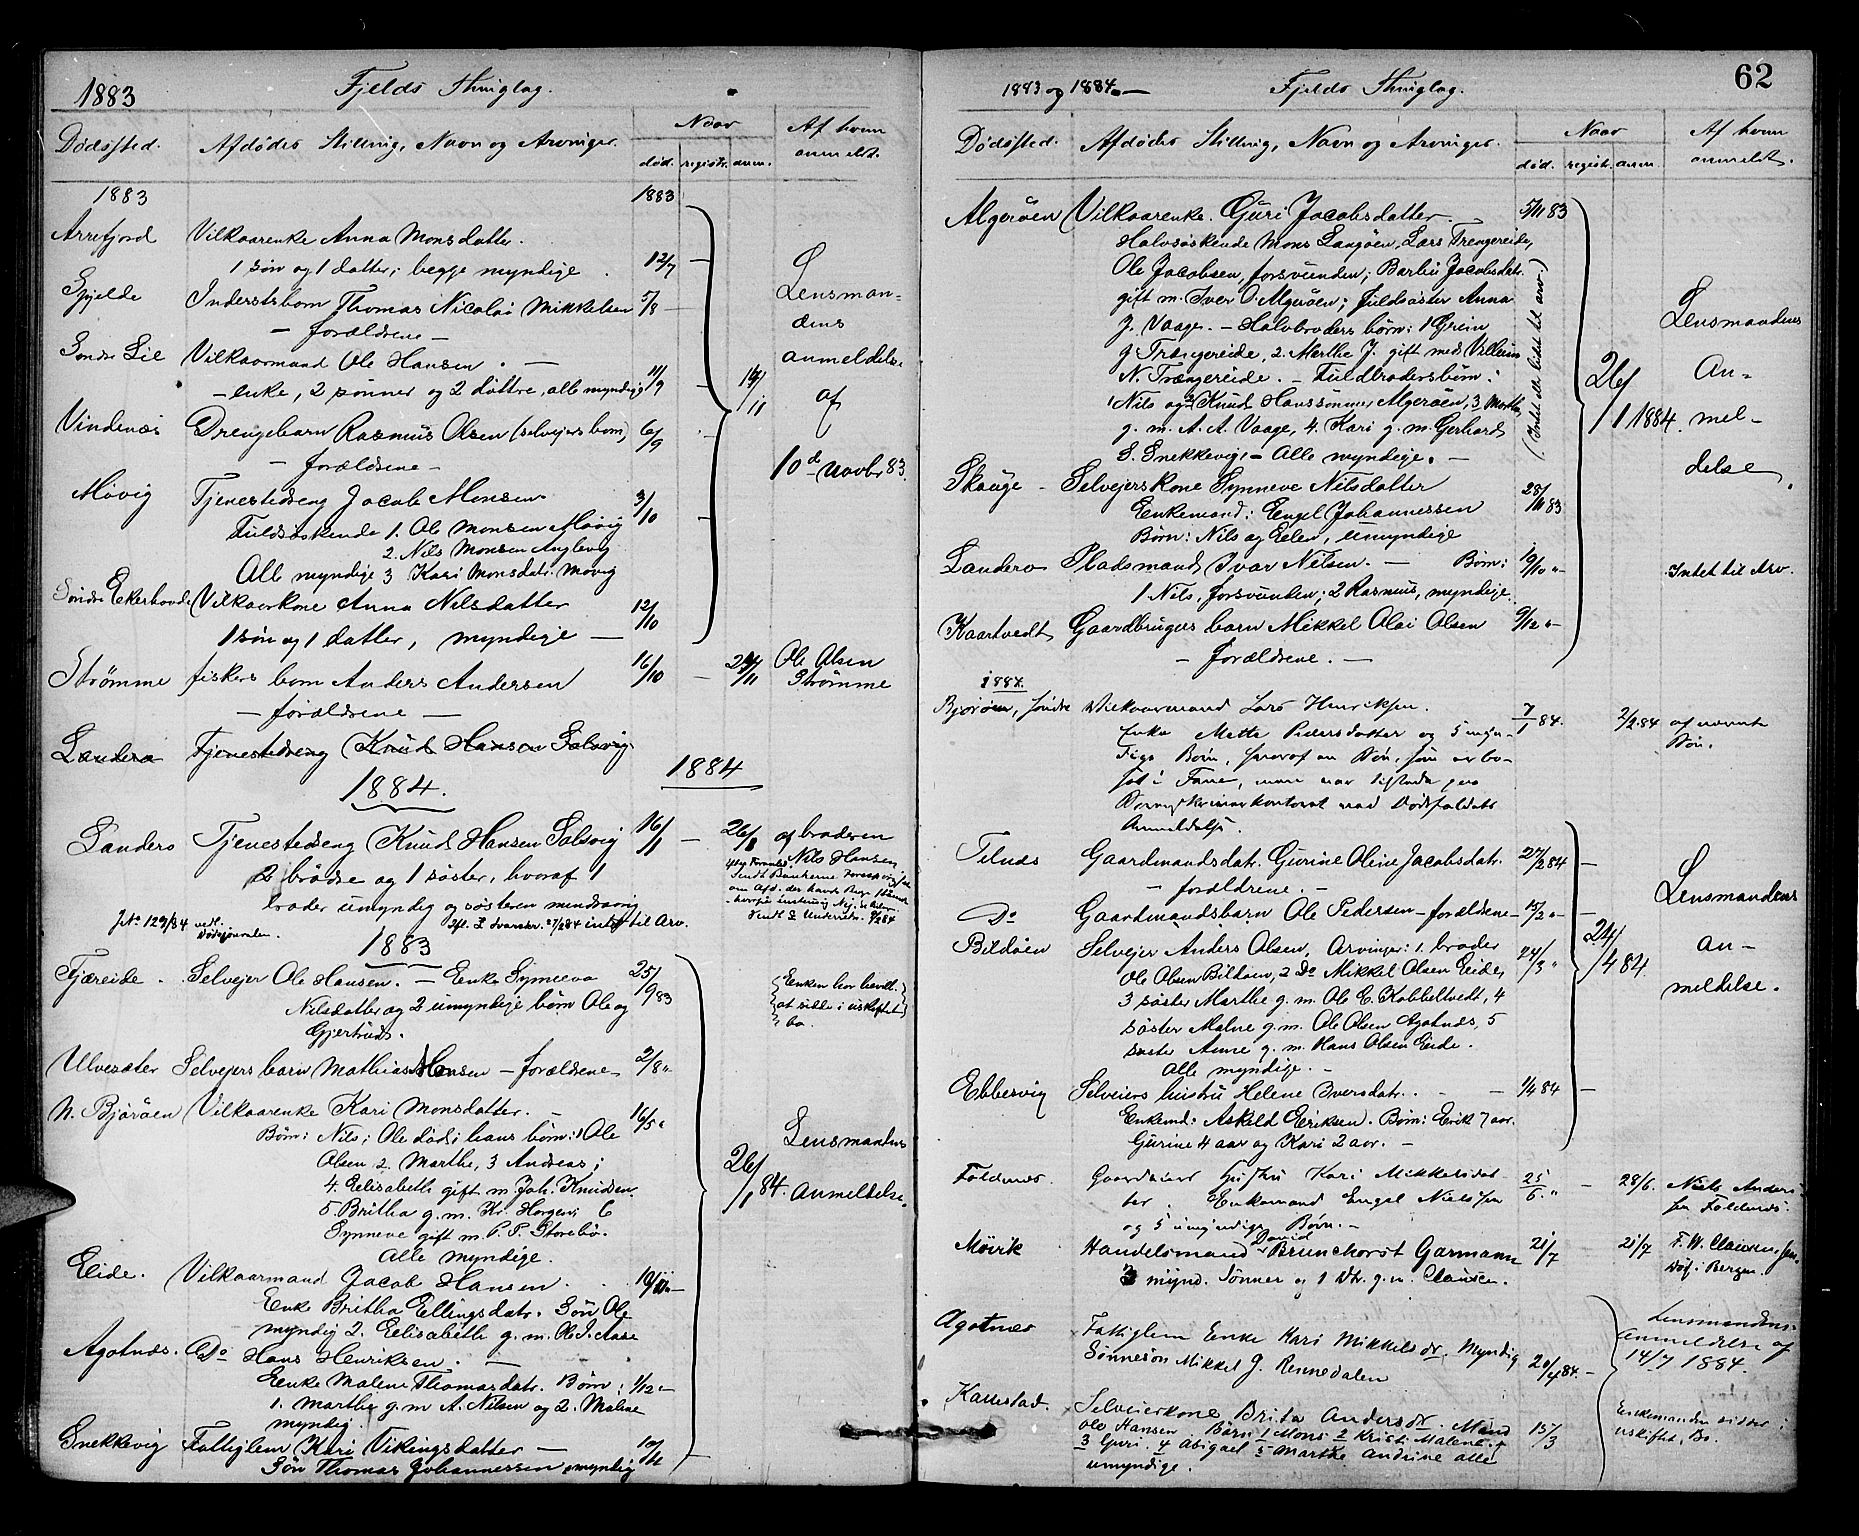 1883 Fjelds Thinglag.
Dødssted. Afdødes Stilling, Navn og Arvinger. Naar Af hvem
død. registr. anm. anmeldt.
1883 1883
Arrefjord Vilkaarenke Anna Monsdatter.
1 søn og 1 datter, begge myndige. 12/7 —
Spjelde Inderstsbarn Thomas Nicolai Mikkelsen 5/8 —
— forældrene —
Søndre Lie Vilkaarmand Ole Hansen. —
— enke, 2 sønner og 2 døttre, alle myndige 11/9 —
Lensman-
dens
anmeldelse
af
10d Novbr 83.
Vindenæs Drengebarn Rasmus Olsen (selveiers barn) 6/9
— forældrene —
Møvig Tjenestedreng Jacob Monsen 3/10 —
Fuldsøskende 1. Ole Monsen Møvig
2. Nils Monsen
Alle myndige 3 Kari Monsdatr. Møvig
Søndre Ekerhovde Vilkaarkone Anna Nilsdatter 12/10
1 søn og 1 datter, myndige —
Strømme fiskers barn Anders Andersen 16/10 — 24/11 Ole Olsen
— forældrene — Strømme
Landerø Tjenestedreng Knud Hansen Solsvig
1884. 1884
Landerø Tjenestedreng Knud Hansen Solsvig 16/1 — 26/3 af broderen
2 brødre og 1 søster, hvoraf 1 Nils Hansen
broder umyndig og søsteren mindreaarig
J.No 129/84 vedl. Dødsjournalen. intet til Arv.
1883
Fjæreide. Selveier Ole Hansen. — Enke Synneva 25/9 83
Nilsdatter og 2 umyndige børn Ole og
Gjertrud.
Enken har bevilt.
at sidde i uskiftet
bo.
Ulvesæter Selveiers barn Mathias Hansen — forældrene — 2/8 "
N. Bjørøen Vilkaarenke Kari Monsdatter. — 16/5 "
Børn: Nils; Ole død; hans børn: 1 Ole
Olsen 2. Marthe, 3 Andreas;
4. Elisabeth gift m. Joh. Knudsen
5. Britha g. m. Kr. Horgen; 6
Synneve gift m. P. P. Storebø.
Alle myndige.
26/1 84 Lensmandens
Anmeldelse.
Eide. Vilkaarmand Jacob Hansen. 10/11 —
Enke Britha Ellingsdatr. Søn Ole
myndig 2. Elisabeth g. m. Ole J. Aase
Agotnæs. Do Hans Henriksen. —
Enke Malene Thomasdatr. Børn: 1/12 —
1. Marthe g. m A. Nilsen og 2. Malene
myndig.
Snekkevig Fattiglem Kari Vikingsdatter — 10/12 —
Søn Thomas Johannessen, myndig
1883 og 1884. — Fjelds Thinglag. 62
Dødssted. Afdødes Stilling, Navn og Arvinger. Naar Af hvem
død. registr. anm. anmeldt.
Algerøen Vilkaarenke. Guri Jacobsdatter. 5/11 83
Halvsøskende Mons Langøen, Lars Trengereide,
Ole Jacobsen, forsvunden; Barbu Jacobsdatr.
gift m. Iver O. Algerøen; Fuldsøster Anna
J. Vaage. — Halvbroders børn: 1 Greim
J Trængereide, 2. Marthe J. gift med Villum
N. Trængereide. — Fuldbrodersbørn:
1 Nils og 2 Knud Hanssønner Algerøen, 3 Marthe
g. m. A. A. Vaage, 4. Kari g. m. Gerhard
S. Snekkevig. — Alle myndige. —
(Intet eller lidet til arv.)
26/1 1884.
Lensmandens
An-
mel-
delse.
Skauge — Selveierskone Synneve Nilsdatter 28/11 83
Enkemand: Engel Johannessen
Børn: Nils og Elen, umyndige
Landerø Pladsmand Ivar Nilsen. — Børn: 19/10 " Intet til Arv.
1 Nils, forsvunden; 2 Rasmus, myndige.
Kaartvedt Gaardbrugers barn Mikkel Olai Olsen 9/12 "
— forældrene. —
1884.
Bjørøen, søndre Vilkaarmand Lars Henriksen. 7/1 84. 2/2 84 af nævnte
Enke Mette Pedersdatter og 5 myn- Søn.
dige Børn, hvoraf en Søn, som er bo-
sat i Fane, men var tilstede paa
Sorenskriverkontoret ved Dødsfaldets
Anmeldelse.
Telnæs Gaardmandsdatr. Gurine Oline Jacobsdatr. 27/2 84 —
— forældrene. —
Do Gaardmandsbarn Ole Pedersen — forældrene — 15/2 " —
Bildøen Selveier Anders Olsen, Arvinger: 1. broder 24/3 "
Ole Olsen Bildøen, 2 Do Mikkel Olsen Eide,
3 søster Marthe g. m. Ole E. Kobbeltvedt, 4
søster Malene g. m. Ole Olsen Agotnæs, 5
søster Anne g. m. Hans Olsen Eide.
Alle myndige. —
24/4 84
Lensmandens
an-
meldelse.
Ebbesvig Selveiers hustru Helene Iversdatr. — 1/4 84 —
Enkemd: Askild Eriksen. Børn: Erik 7 aar.
Gurine 4 aar og Kari 2 aar. —
Foldnæs. Gaardeiers Hustru Kari Mikkelsdat- 25/5 " — 28/6. Niels Anders-
ter. Enkemand Engel Nielsen sen Foldnæs.
og 5 umyndige Børn. —
Møvik Handelsmand David Brunchorst Garmann 21/7 21/7 F. W. Clausen,
3 mynd. Sønner og 1 Dtr. g. m. Clausen. i Bergen.
Agotnæs Fattiglem Enke Kari Mikkelsdr. Myndig
Sønnesøn Mikkel J. Rennedalen 20/4 84. —
Lensmandens
anmeldelse af
14/7 1884.
Karistad. Selveierkone Brita Andersdr. Mand
Ole Hansen Børn 1 Mons 2 Kristi Malene 15/3
3 Guri. 4 Abigael 5 Marthe Andrine alle
umyndige.
Enkemanden sidder i
uskiftet Bo.